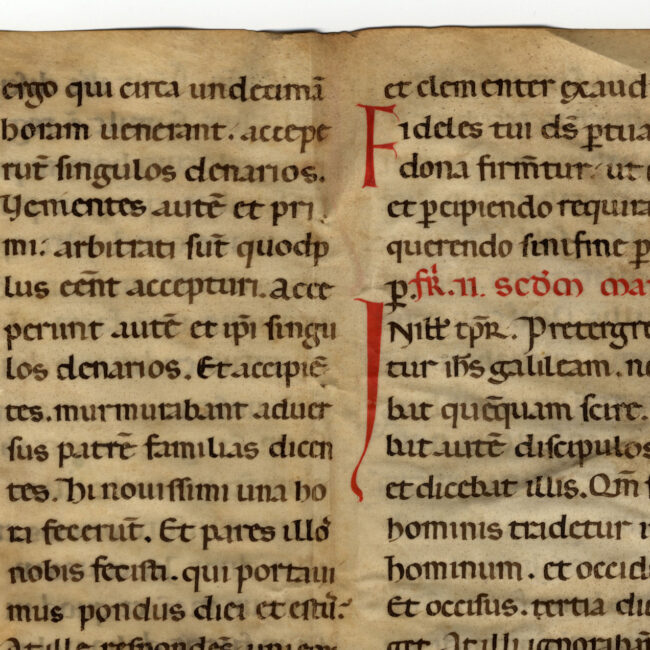 ergo qui circa undecimā
horam uenerant. accepe
rūt singulos denarios.
Uenientes autē et pri
mi. arbitrati sūt quod p
lus eēnt accepturi. Acce
perunt autē et ip̄i singu
los denarios. Et accipiē
tes. murmurabant aduer
sus patrē familias dicen
tes. hi nouissimi una ho
ra fecerūt. Et pares illo
nobis fecisti. qui portaui
mus pondus diei et estū.
At ille respondēs uni eor
et clementer exaud
Fideles tui dś ꝑ tua
dona firm̄tur. ut
et ꝑcipiendo requira
querendo sinifine ꝑ
ꝑ. fr̄. II. scd̄m mar
IN ill̄ tp̄R. Pretergre
tur ih̄s galileam. ne
bat quēquam scire.
bat autē discipulos
et dicebat illis. Qm̄
hominis tradetur i
hominum. et occid
Et occisus. tertia di
get. At illi ignorabāt